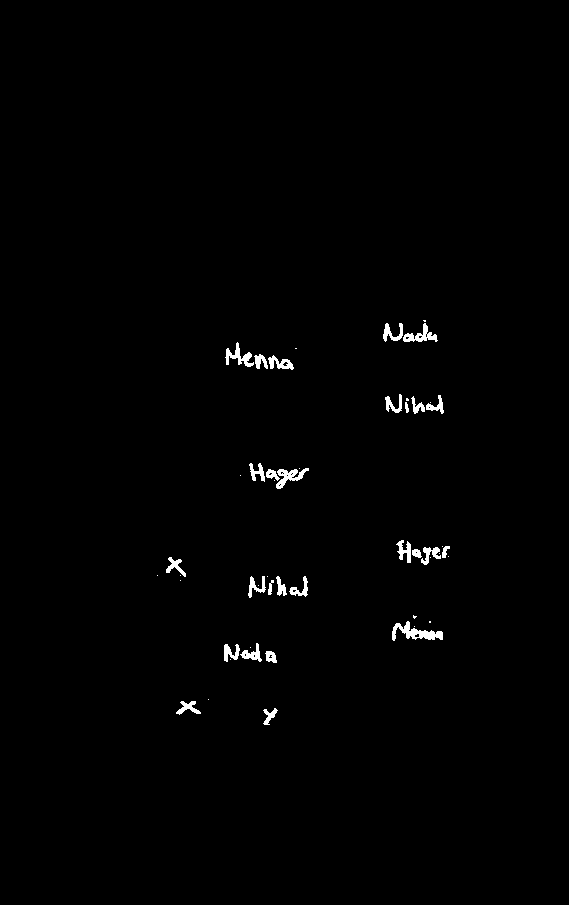 Nada
Menna
Nihal
Hager
Hager
X
Nihal
Menna
Nada
X y